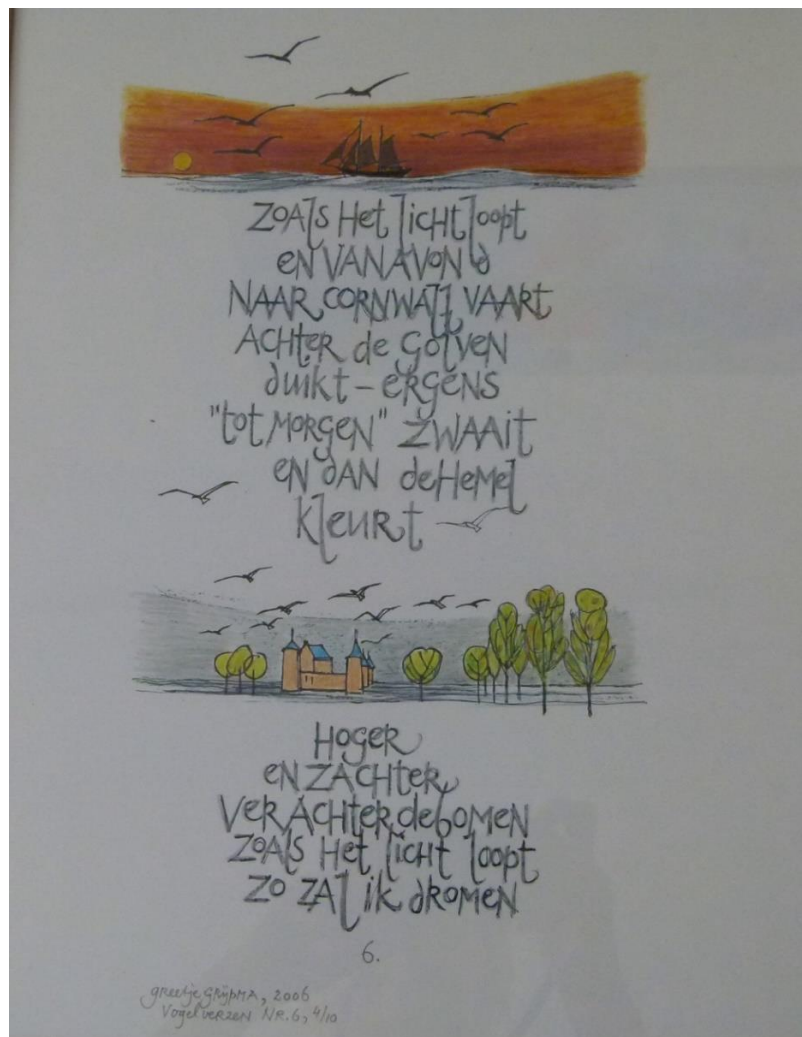 ZOALS HET LICHT LOOPT
EN VANAVOND
NAAR CORNWALL VAART
ACHTER DE GOLVEN
DUIKT – ERGENS
"TOT MORGEN" ZWAAIT
EN DAN DE HEMEL
KLEURT
HOGER
EN ZACHTER
VER ACHTER DE BOMEN
ZOALS HET LICHT LOOPT
ZO ZAL IK DROMEN
6.
Greetje Grijpma, 2006
Vogelverzen NR. 6, 4/10